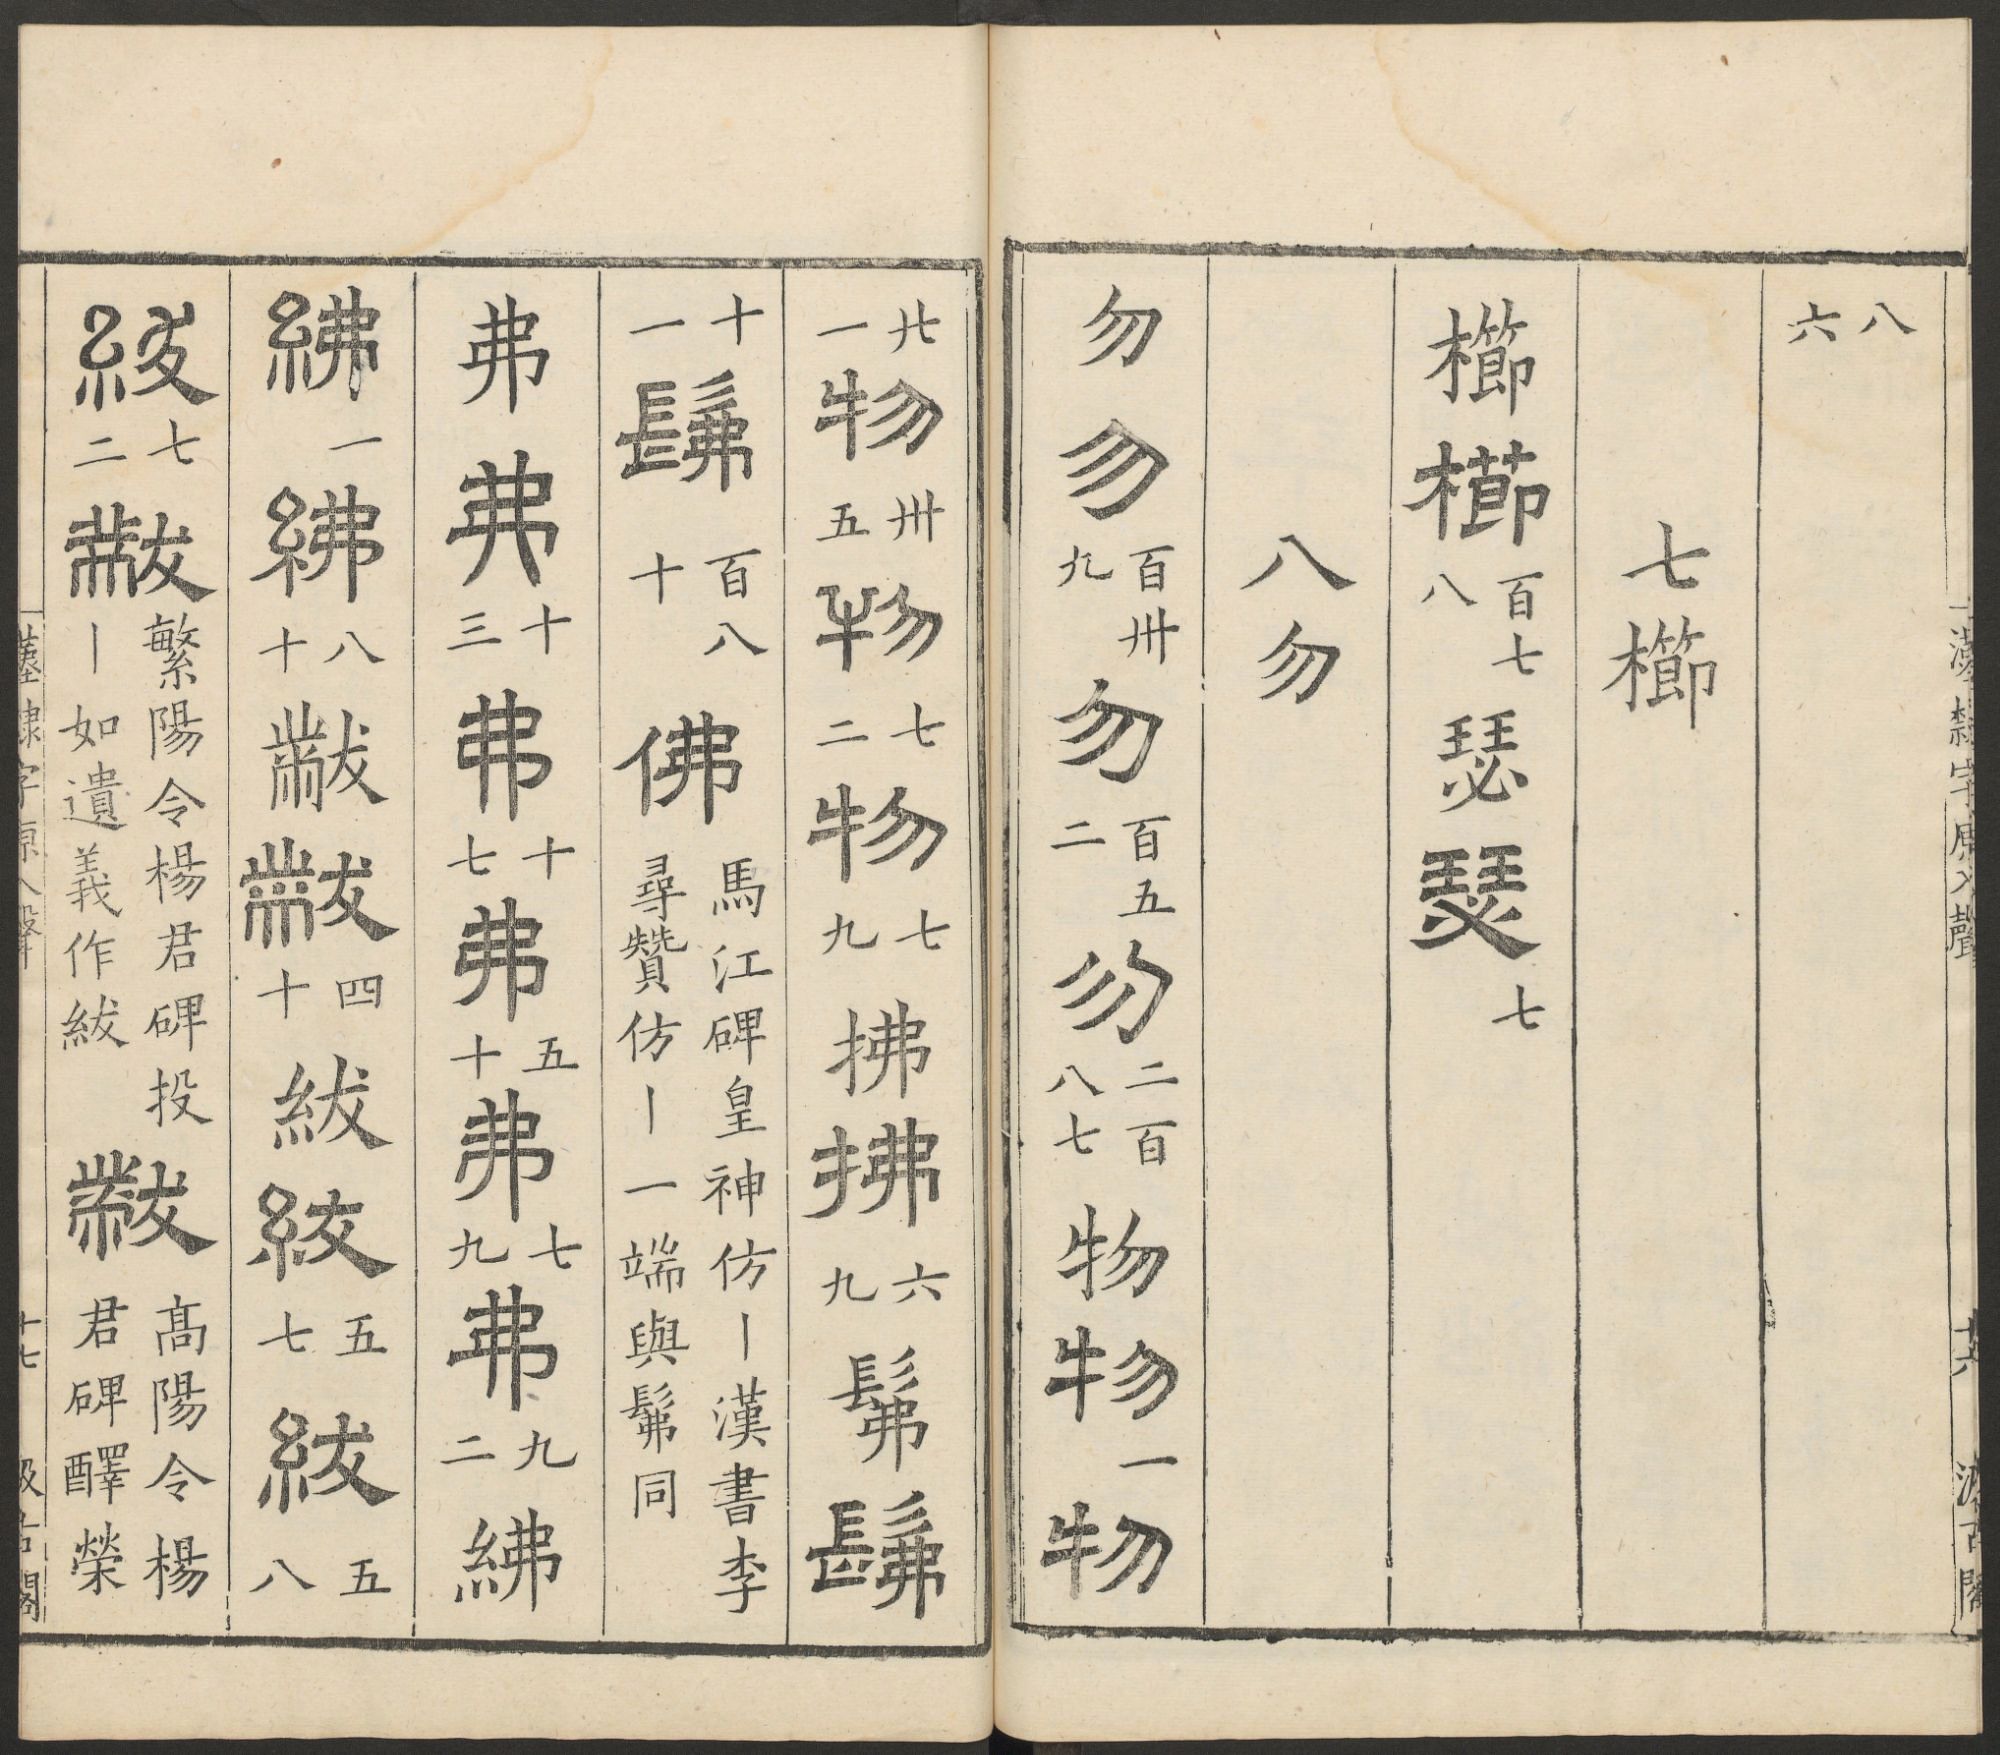 八六
七櫛
櫛櫛百七八瑟瑟七
八勿
勿勿百卅九勿百五二勿二百八七物物一物
廿一物卅五物七二物七九拂拂六九髴髴
十一髴百八十佛馬江碑皇神仿丨漢書李尋贊仿丨一端與髴同
弗弗十三弗十七弗五十弗七九弗九二紼
紼一紼八十黻黻四十紱紱五七紱五八
紱七二黻繁陽令楊君碑投丨如遺義作紱黻高陽令楊君碑醳榮
漢隸字原入聲 十六 汲古閣
漢隸字原入聲 十七 汲古閣